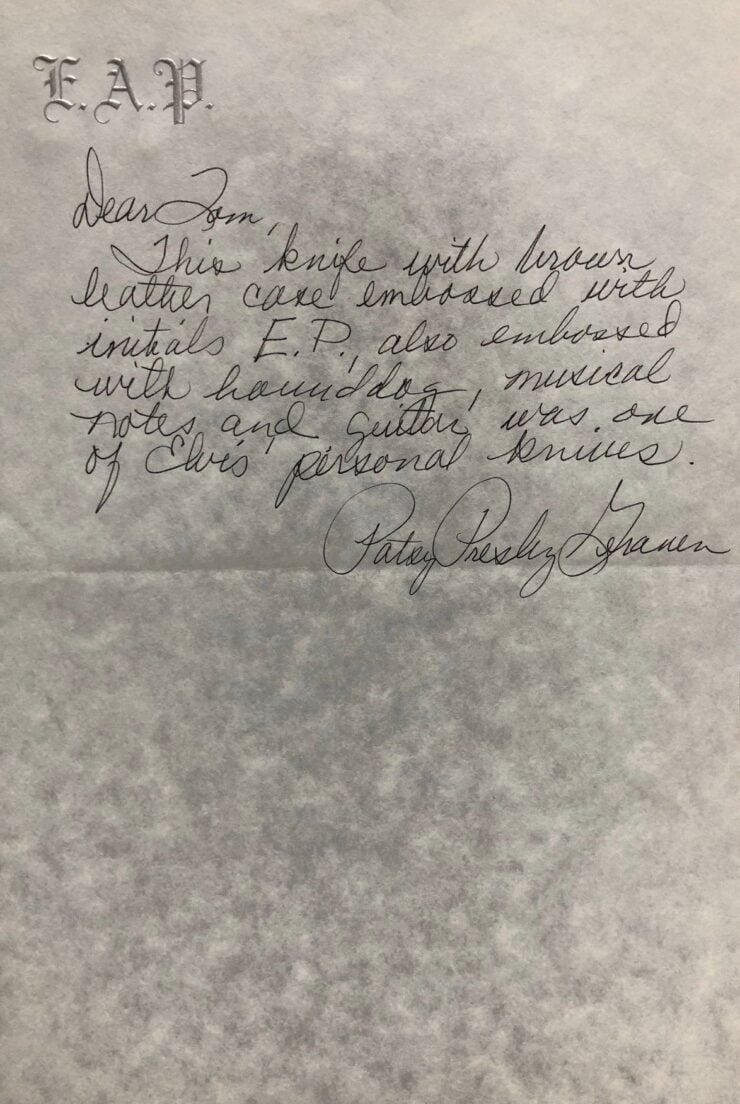 E.A.P.
Dear Tom,
This knife with brown
leather case embossed with
initials E.P., also embossed
with hounddog, musical
notes, and guitar, was one
of Elvis' personal knives.
Patsy Presley Geranen